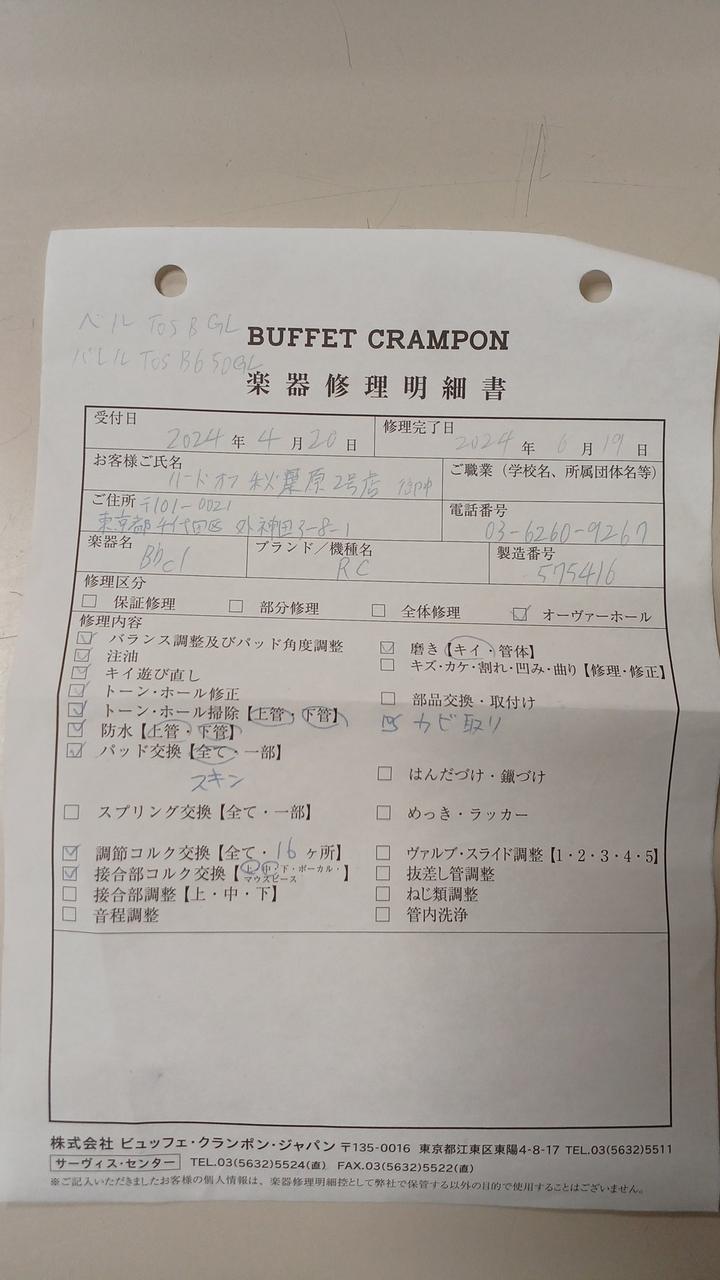 ベル Tos B GL
バレル Tos B650GL
BUFFET CRAMPON
楽器修理明細書
受付日 2024年4月20日 修理完了日 2024年6月19日
お客様ご氏名 ハードオフ 秋葉原2号店 ご職業（学校名、所属団体名等）
ご住所 〒101-0021
東京都千代田区 外神田3-8-1 電話番号 03-6260-9267
楽器名 B♭cl ブランド／機種名 RC 製造番号 575416
修理区分
□ 保証修理 □ 部分修理 □ 全体修理 ☑ オーヴァーホール
修理内容
☑ バランス調整及びパッド角度調整 ☑ 磨き【キイ・管体】
☑ 注油 □ キズ・カケ・割れ・凹み・曲り【修理・修正】
☑ キイ遊び直し
☑ トーン・ホール修正 □ 部品交換・取付け
☑ トーン・ホール掃除【上管・下管】 ☑ カビ取り
☑ 防水【上管・下管】
☑ パッド交換【全て・一部】
スキン □ はんだづけ・鑞づけ
□ スプリング交換【全て・一部】 □ めっき・ラッカー
☑ 調節コルク交換【全て・16ヶ所】 □ ヴァルブ・スライド調整【1・2・3・4・5】
☑ 接合部コルク交換【上・中・下・ボーカル・マウスピース】 □ 抜差し管調整
□ 接合部調整【上・中・下】 □ ねじ類調整
□ 音程調整 □ 管内洗浄
株式会社 ビュッフェ・クランポン・ジャパン 〒135-0016 東京都江東区東陽4-8-17 TEL.03(5632)5511
サーヴィス・センター TEL.03(5632)5524(直) FAX.03(5632)5522(直)
※ご記入いただきましたお客様の個人情報は、楽器修理明細控として弊社で保管する以外の目的で使用することはございません。